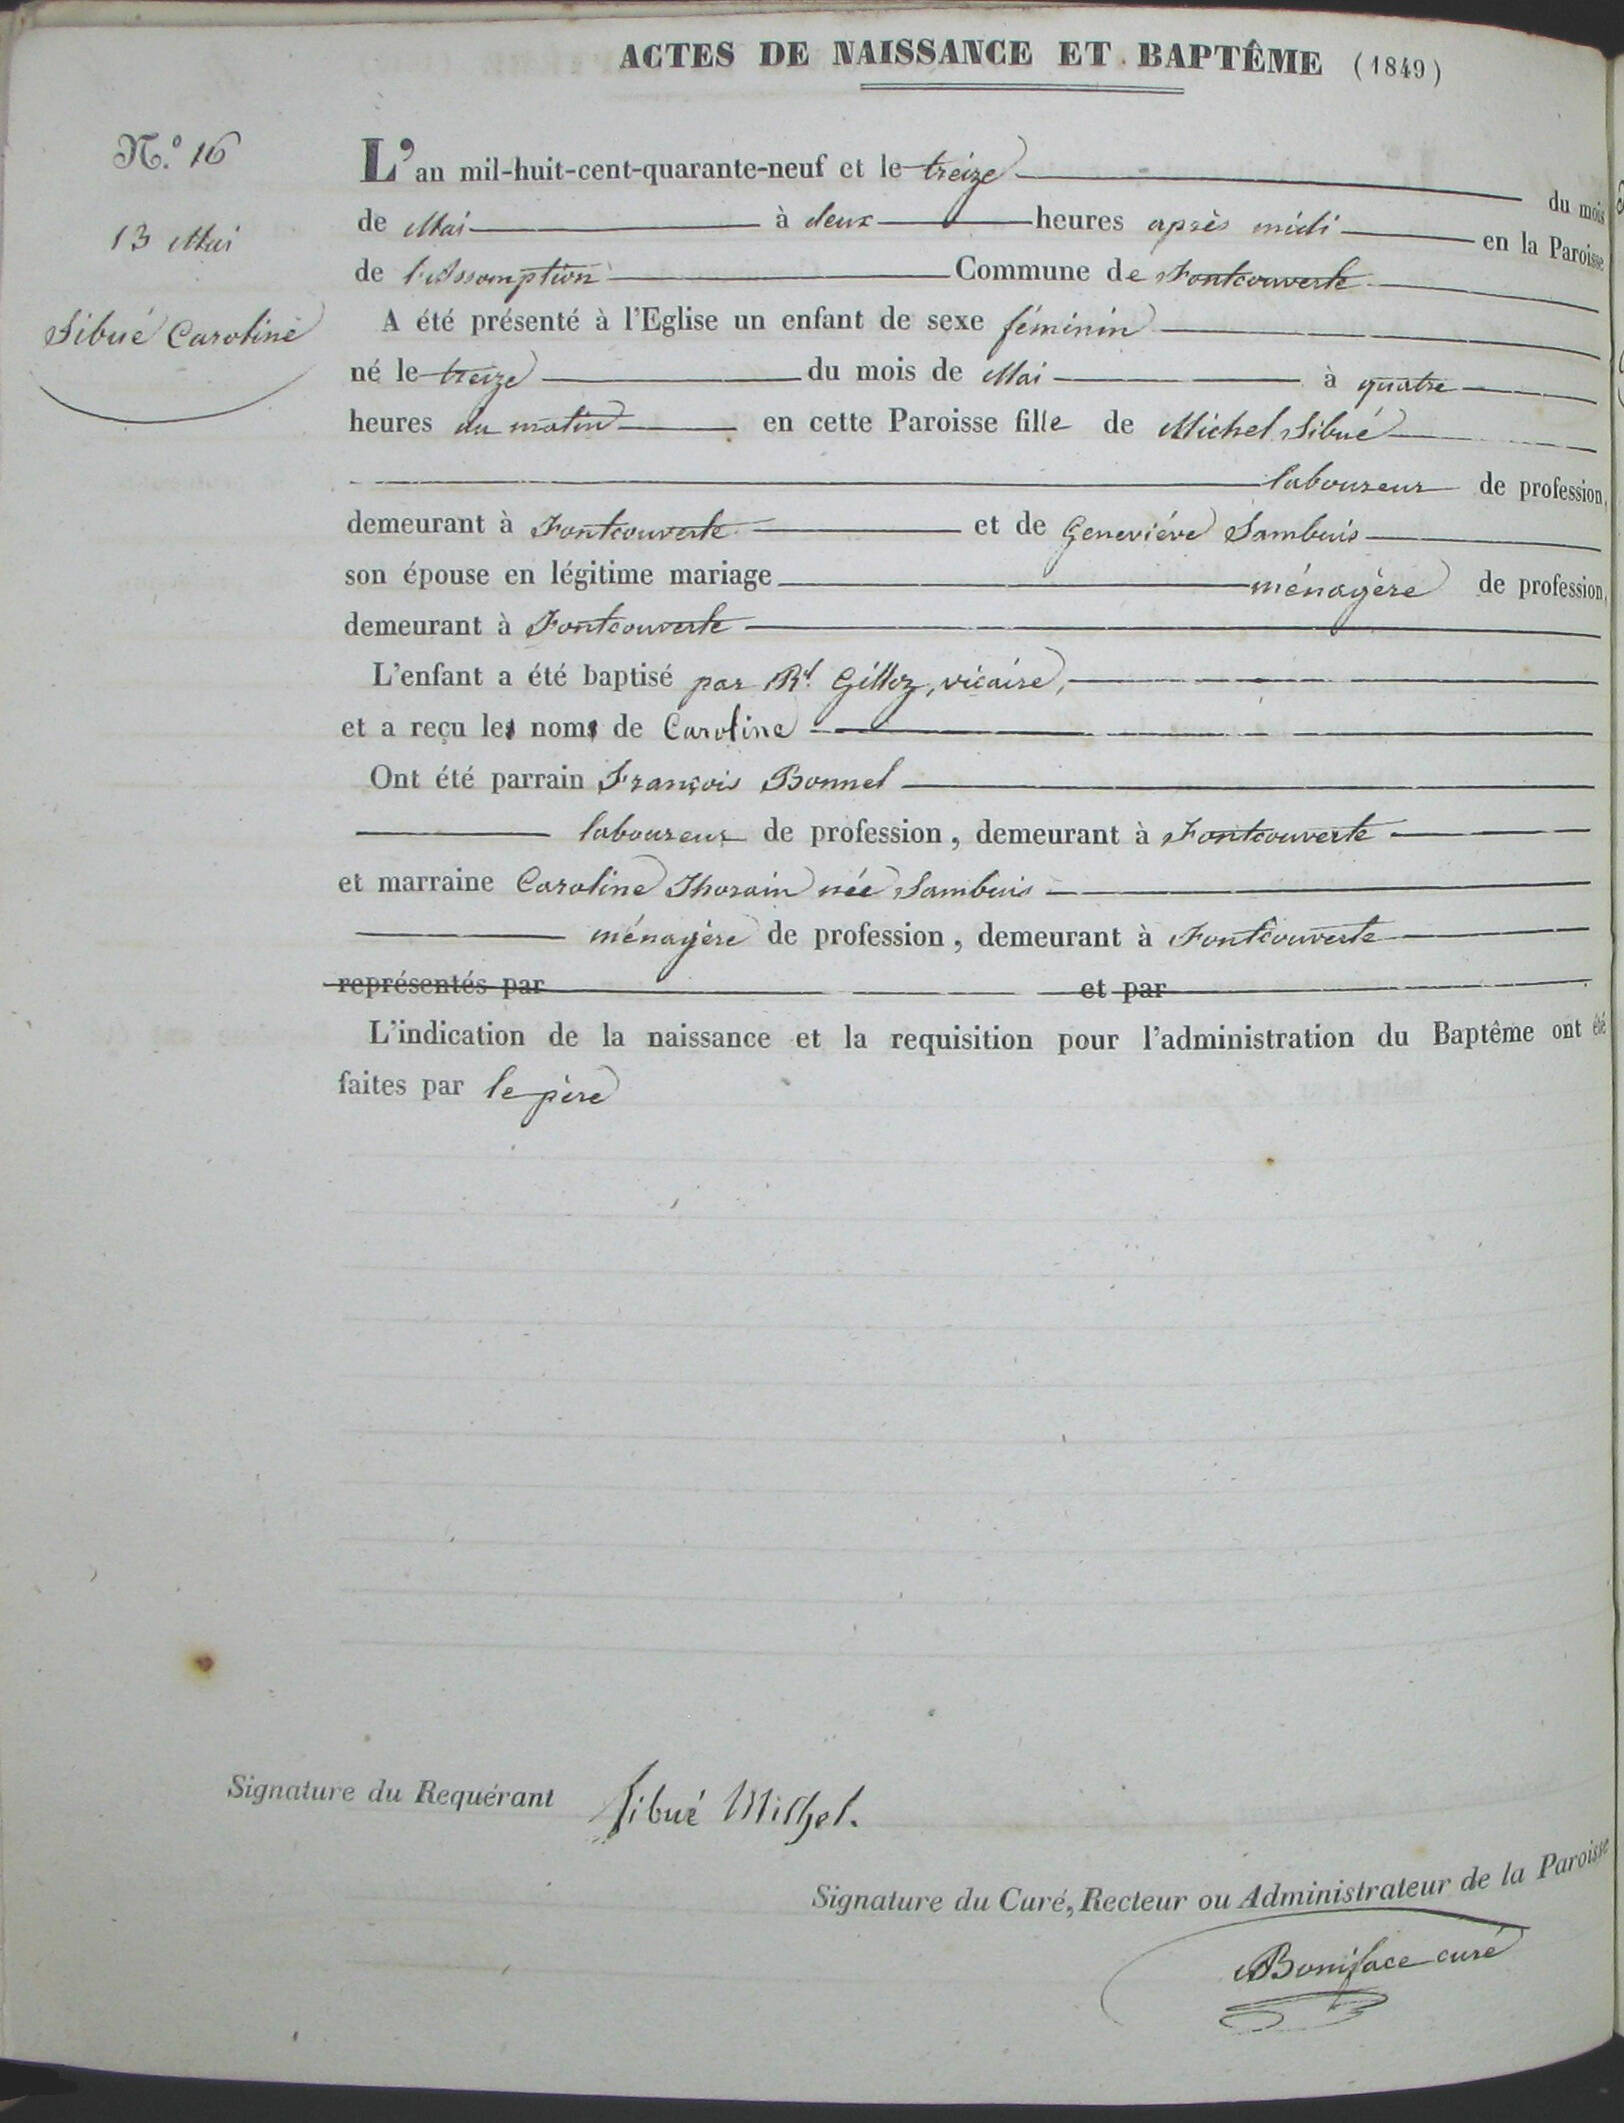 ACTES DE NAISSANCE ET BAPTÊME (1849)
N.º 16
13 Mai
Sibué Caroline
L'an mil-huit-cent-quarante-neuf et le treize du mois
de Mai à deux heures après midi en la Paroisse
de l'Assomption Commune de Fontcouverte
A été présenté à l'Eglise un enfant de sexe féminin
né le treize du mois de Mai à quatre
heures du matin en cette Paroisse fille de Michel Sibué
laboureur de profession,
demeurant à Fontcouverte et de Geneviève Sambuis
son épouse en légitime mariage ménagère de profession,
demeurant à Fontcouverte
L'enfant a été baptisé par Rd. Gilloz, vicaire,
et a reçu les noms de Caroline
Ont été parrain François Bonnel
laboureur de profession, demeurant à Fontcouverte
et marraine Caroline Thorain née Sambuis
ménagère de profession, demeurant à Fontcouverte
représentés par et par
L'indication de la naissance et la requisition pour l'administration du Baptême ont été
faites par le père
Signature du Requérant Sibué Michel.
Signature du Curé, Recteur ou Administrateur de la Paroisse
Boniface curé